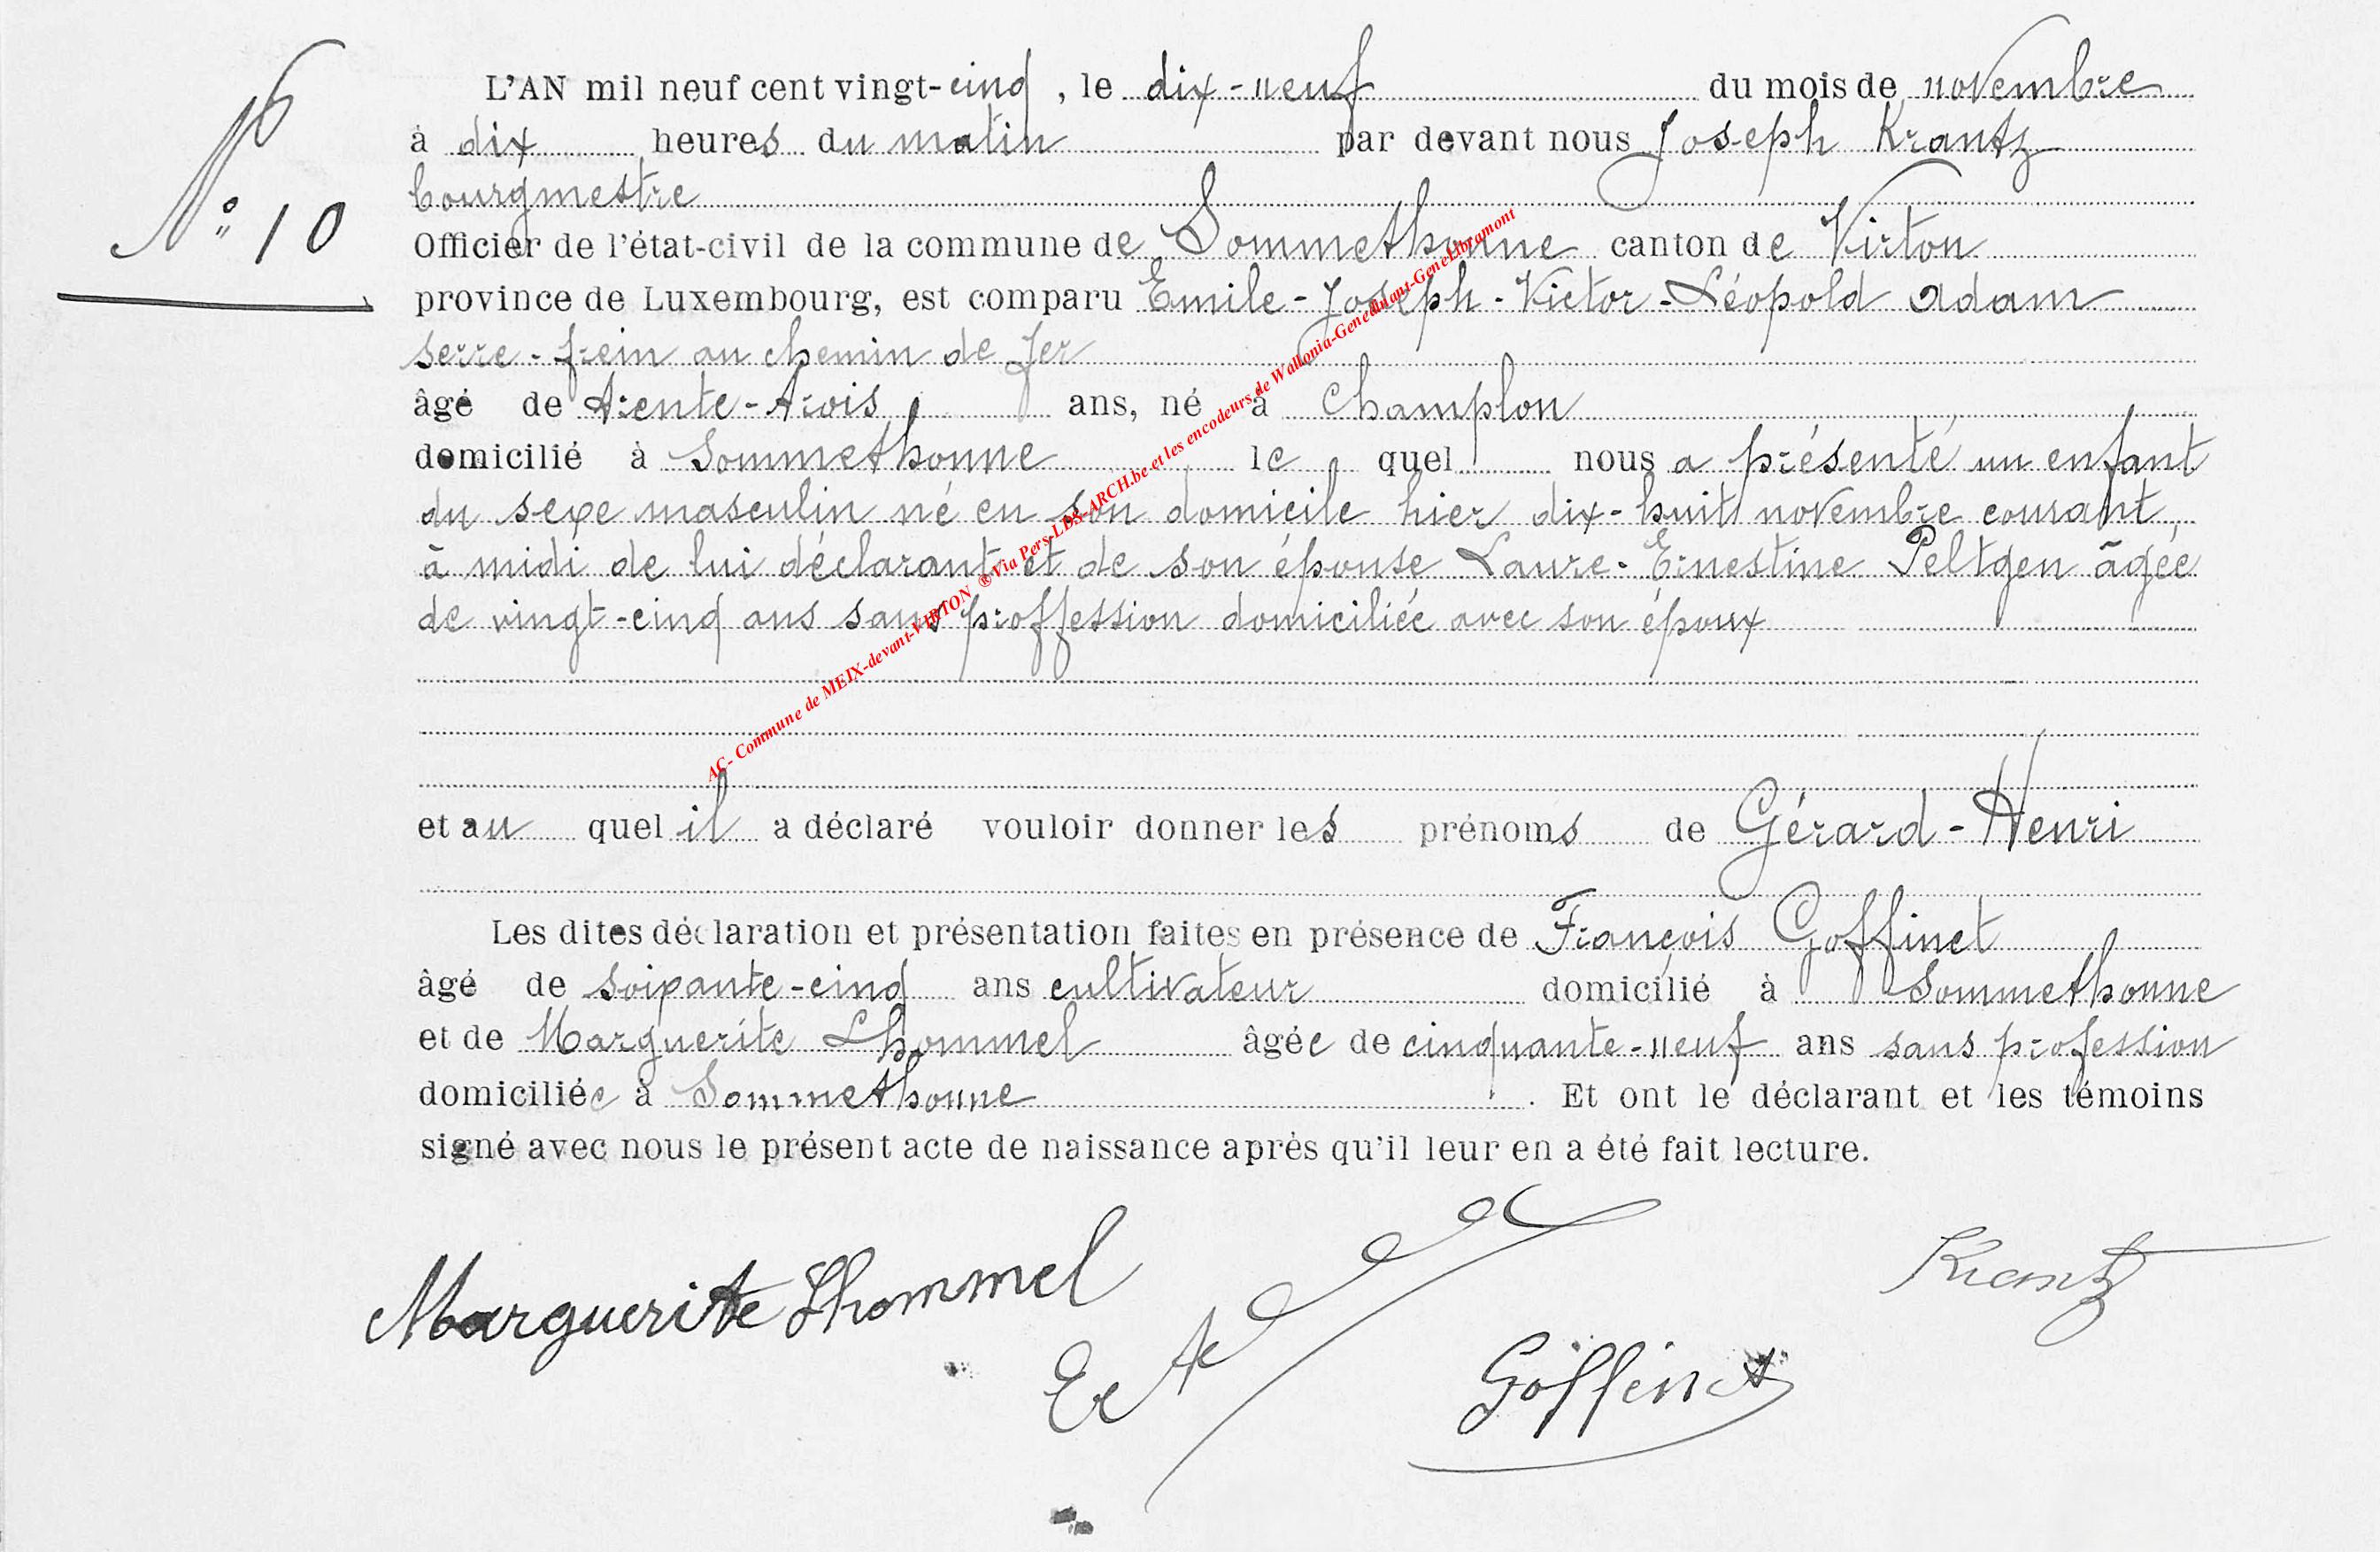 L'AN mil neuf cent vingt-cinq, le dix-neuf du mois de novembre
à dix heures du matin par devant nous Joseph Krantz
bourgmestre
N° 10
Officier de l'état-civil de la commune de Sommethonne canton de Virton
province de Luxembourg, est comparu Emile-Joseph-Victor-Léopold Adam
serre-frein au chemin de fer
âgé de trente-trois ans, né à Champlon
domicilié à Sommethonne le quel nous a présenté un enfant
du sexe masculin né en son domicile hier dix-huit novembre courant
à midi de lui déclarant et de son épouse Laure-Ernestine Peltgen âgée
de vingt-cinq ans sans proffession domiciliée avec son époux
AC- Commune de MEIX-devant-VIRTON ® Via Pers-LDS-ARCH.be et les encodeurs de Wallonia-Genedinant-GeneLibramont
et au quel il a déclaré vouloir donner les prénoms de Gérard-Henri
Les dites déclaration et présentation faites en présence de François Goffinet
âgé de soixante-cinq ans cultivateur domicilié à Sommethonne
et de Marguerite Lhommel âgée de cinquante-neuf ans sans profession
domiciliée à Sommethonne. Et ont le déclarant et les témoins
signé avec nous le présent acte de naissance après qu'il leur en a été fait lecture.
Marguerite Lhommel
Krantz
Goffinet